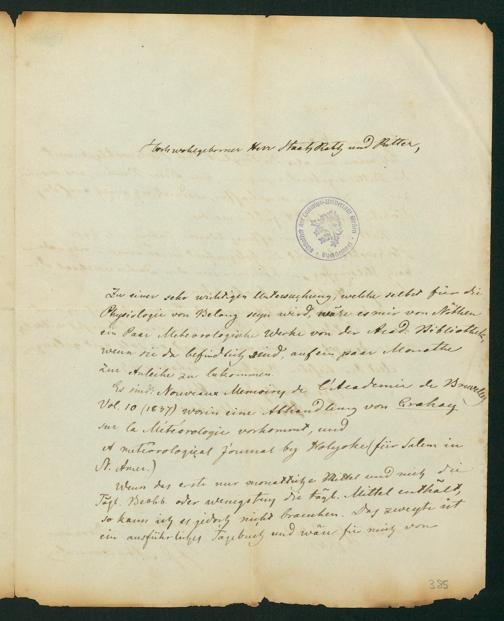 Hochwohlgeborner Herr StaatsRath und Ritter,
Zu einer sehr wichtigen Untersuchung, welche selbst für die
Physiologie von Belang seyn wird, wäre es mir von Nöthen
ein Paar Meteorologische Werke von der Acad. Bibliothek,
wenn sie da befindlich sind, auf ein paar Monathe
zur Anleihe zu bekommen.
Es sind: Nouveaux Memoires de l'Academie de Bruxelles
Vol. 10 (1837) worin eine Abhandlung von Crahay
sur la Météorologie vorkommt, und
A meteorological journal by Holyoke (für Salem in
N. Amer.)
Wenn das erste nur monathliche Mittel und nicht die
Tägl. Beobb. oder wenigstens die tägl. Mittel enthält,
so kann ich es jedoch nicht brauchen. Das zweyte ist
ein ausführliches Tagebuch und wäre für mich von
385